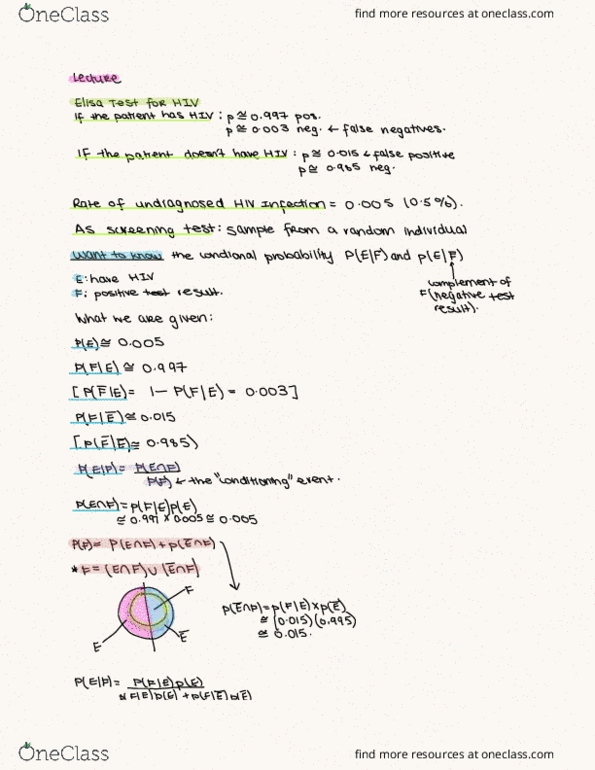 OneClass
find more resources at oneclass.com
Lecture
Elisa Test for HIV
If the patient has HIV : p≅0.997 pos.
p≅0.003 neg. ← false negatives.
If the patient doesn't have HIV : p≅ 0.015 ← false positive
p≅ 0.985 neg.
Rate of undiagnosed HIV infection = 0.005 (0.5%).
As screening test: sample from a random individual
Want to know the condional probability P(E|F) and p(E|F̅)
E: have HIV
F: positive test result.
complement of
F(negative test
result).
What we are given:
P(E)≅ 0.005
P(F|E) ≅ 0.997
[P(F̅|E)= 1- P(F|E) = 0.003]
P(F|E̅)≅ 0.015
[p(F̅|E̅)≅ 0.985)
P(E|F)= P(E∩F)
P(F) ← the "conditioning" event.
p(E∩F)=p(F|E)p(E)
≅ 0.997 x 0.005 ≅ 0.005
P(F)= P(E∩F)+p(E̅∩F)
* F = (E∩F)∪(E̅∩F)
F
E
E̅
p(E̅∩F)=p(F|E̅)xp(E̅)
≅ (0.015)(0.995)
≅ 0.015.
P(E|F)= P(F|E)p(E)
P(F|E)p(E) +p(F|E̅)p(E̅)
OneClass
find more resources at oneclass.com